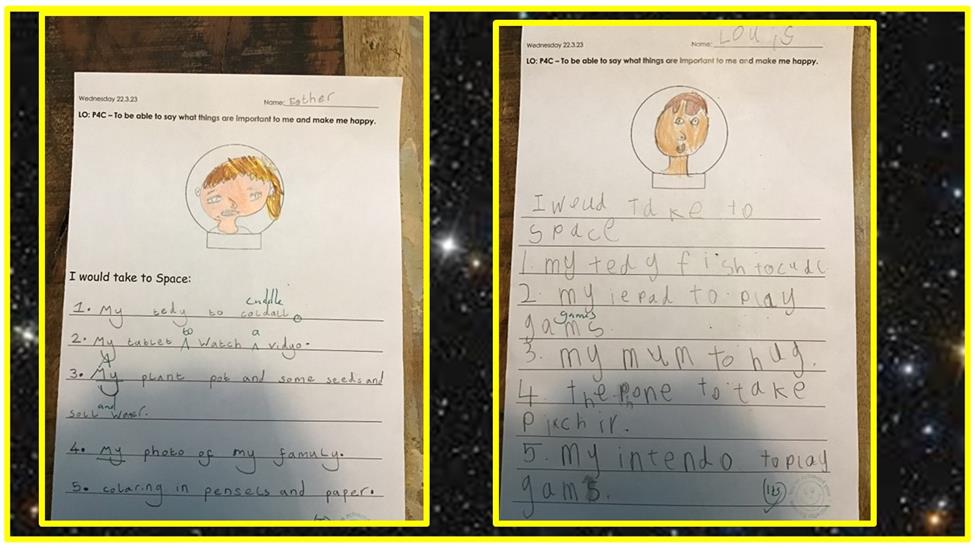 Wednesday 22.3.23
Name: Esther
LO: P4C – To be able to say what things are important to me and make me happy.
I would take to Space:
cuddle
1. My tedy to coldall.
to a
2. My tablet watch vidyo.
3. My plant pot and some seeds and
and
soll water.
4. My photo of my family.
5. coloring in pensels and paper.
Wednesday 22.3.23
Name: LOUIS
LO: P4C – To be able to say what things are important to me and make me happy.
I weud take to
space
1. my tedy fish to cudl
2. my iepad to play
games
gams.
3. my mum to hug.
4. the to take
pikchir.
5. my intendo to play
gams.